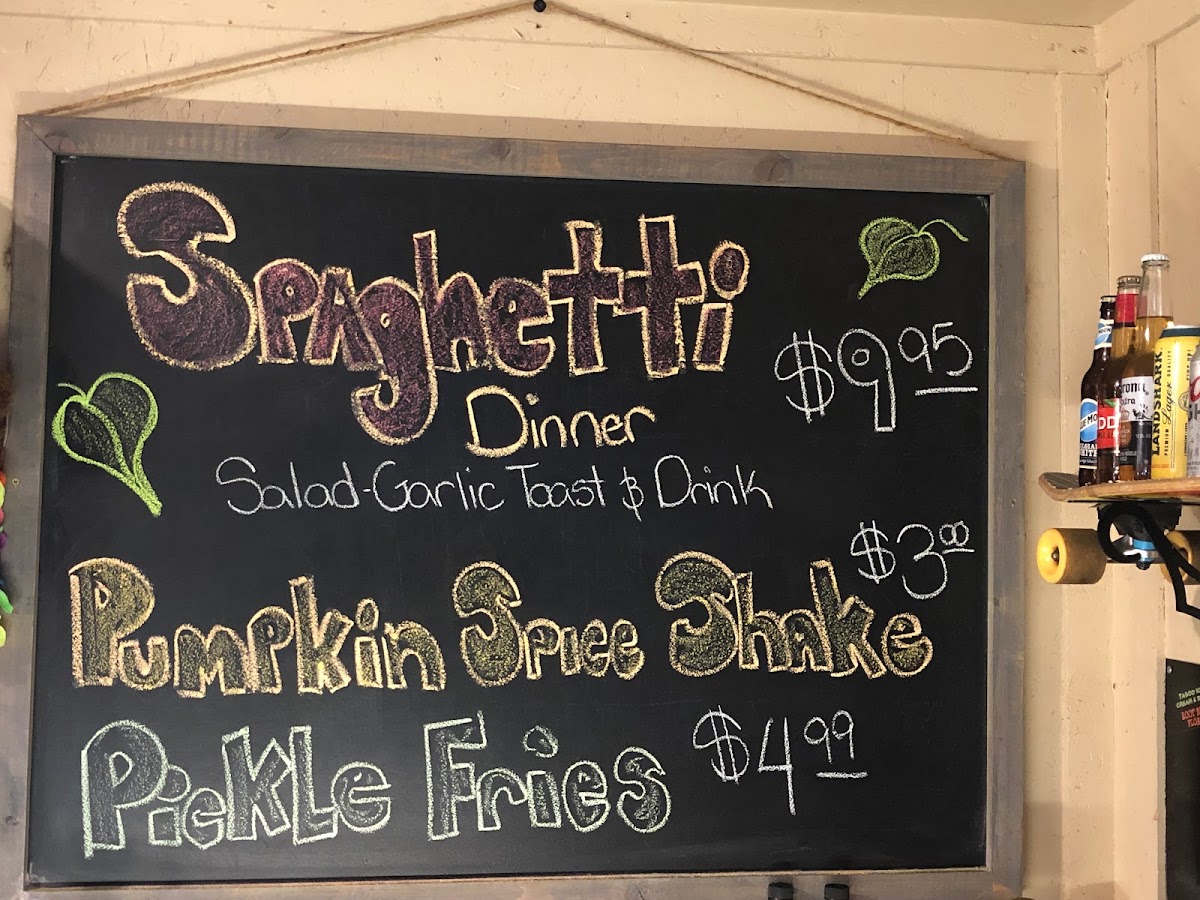 Spaghetti
$9.95
Dinner
Salad-Garlic Toast & Drink
$3.00
Pumpkin Spice Shake
Pickle Fries
$4.99
Corona
Extra
LANDSHARK
Lager
PREMIUM